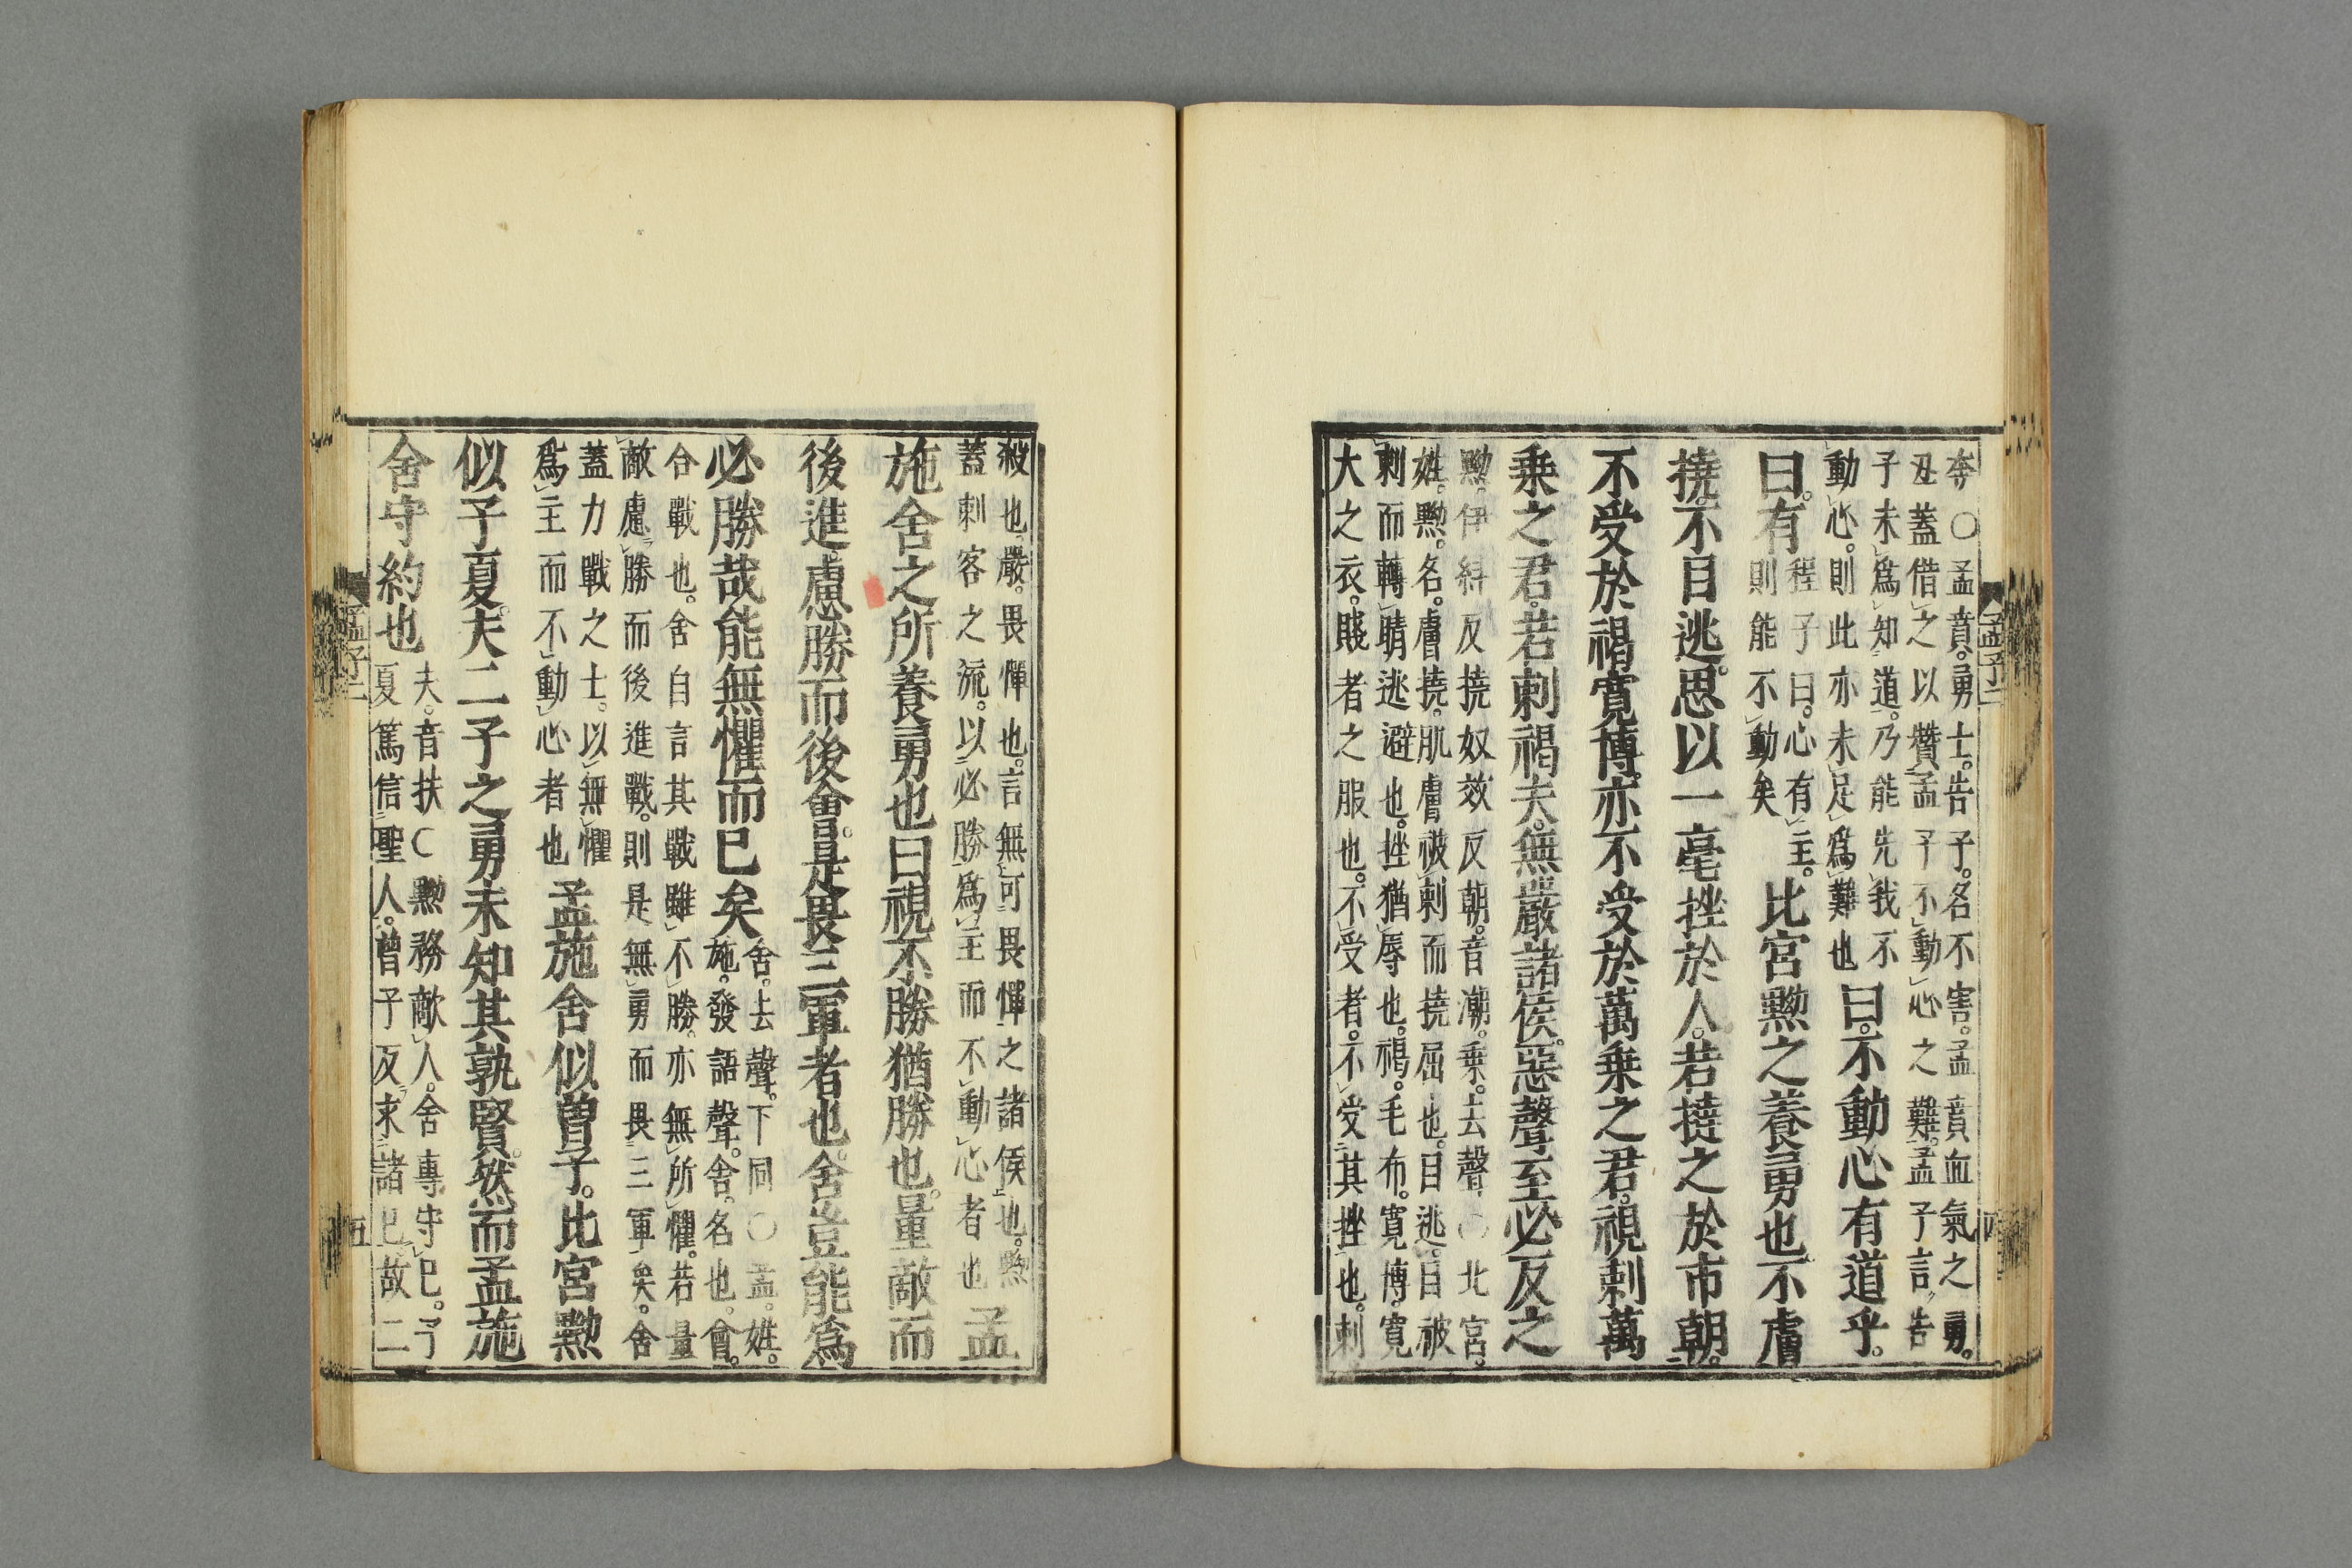 奔○孟賁。勇士。告子。名不害。孟賁血氣之勇。
丑蓋借之以贊孟子不動心之難。孟子言告
子未爲知道。乃能先我不
動心。則此亦未足爲難也
曰。不動心有道乎。
曰。有
程子曰。心有主。
則能不動矣
北宮黝之養勇也。不膚
撓。不目逃。思以一毫挫於人。若撻之於市朝。
不受於褐寬博。亦不受於萬乗之君。視刺萬
乗之君。若刺褐夫。無嚴諸侯。惡聲至必反之
黝。伊糾反撓奴效反朝。音潮。乗。去聲○北宮。
姓。黝。名。膚撓。肌膚被刺而撓屈也。目逃。目被
刺而轉睛逃避也。挫猶辱也。褐。毛布。寬博。寬
大之衣。賤者之服也。不受者。不受其挫也。刺
孟子二
四
殺也。嚴。畏憚也。言無可畏憚之諸侯也。黝
蓋刺客之流。以必勝爲主而不動心者也
孟
施舍之所養勇也曰視不勝猶勝也。量敵而
後進。慮勝而後會。是畏三軍者也。舍豈能爲
必勝哉能無懼而已矣
舍。去聲。下同○孟。姓。
施。發語聲。舍。名也。會。
合戰也。舍自言其戰雖不勝。亦無所懼。若量
敵慮勝而後進戰。則是無勇而畏三軍矣。舍
蓋力戰之士。以無懼
爲主而不動心者也
孟施舍似曽子。北宮黝
似子夏。夫二子之勇未知其孰賢。然而孟施
舍守約也
夫。音扶○黝務敵人。舍專守己。子
夏篤信聖人。曽子反求諸己。故二
孟子二
五